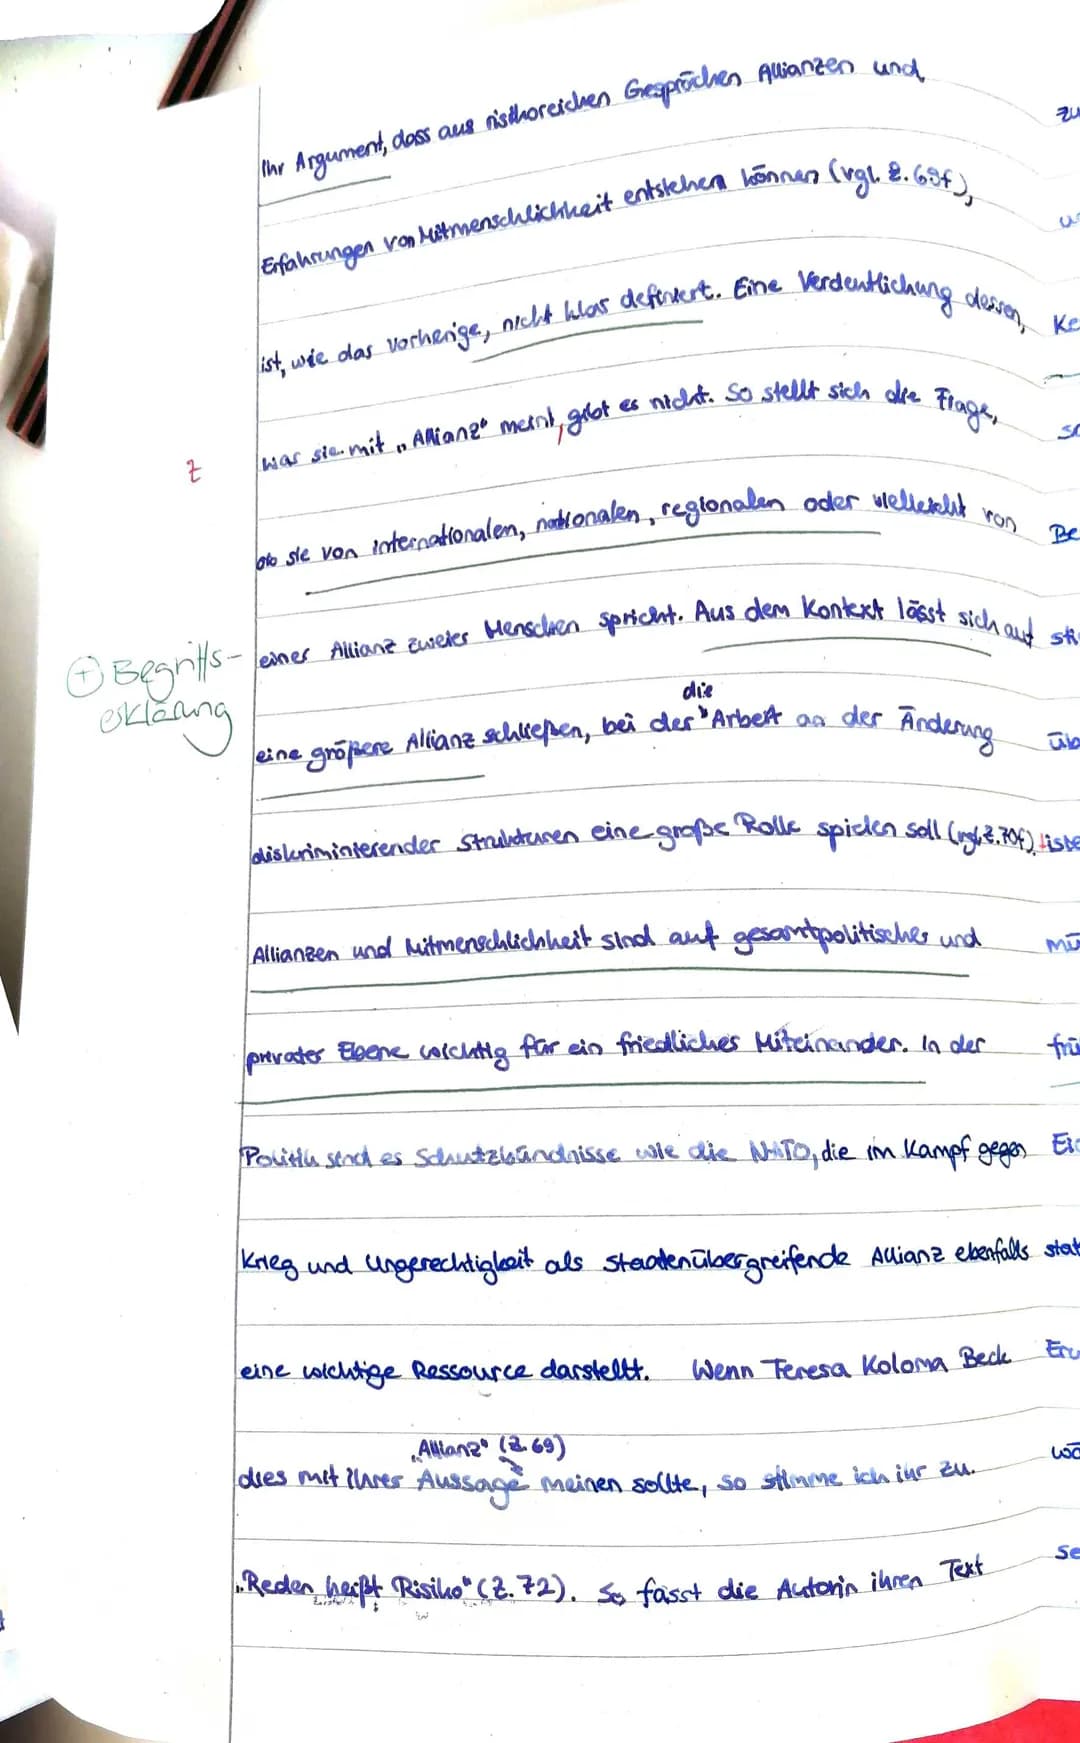 Ihr Argument, dass aus risikoreichen Gesprächen Allianzen und
Erfahrungen von Mitmenschlichkeit entstehen können (vgl. Z. 69f),
ist, wie das vorherige, nicht klar definiert. Eine Verdeutlichung dessen,
was sie mit „Allianz" meint, gibt es nicht. So stellt sich die Frage,
Z
ob sie von internationalen, nationalen, regionalen oder vielleicht von
einer Allianz zweier Menschen spricht. Aus dem Kontext lässt sich auf
+ Begriffs-
erklärung
die
eine größere Allianz schließen, bei der Arbeit an der Änderung
diskriminierender Strukturen eine große Rolle spielen soll (vgl. Z. 70f).
Allianzen und Mitmenschlichkeit sind auf gesamtpolitischer und
privater Ebene wichtig für ein friedliches Miteinander. In der
Politik sind es Schutzbündnisse wie die NATO, die im Kampf gegen
Krieg und Ungerechtigkeit als staatenübergreifende Allianz ebenfalls
eine wichtige Ressource darstellt. Wenn Teresa Koloma Beck
„Allianz" (Z. 69)
dies mit ihrer Aussage meinen sollte, so stimme ich ihr zu.
„Reden heißt Risiko" (Z. 72). So fasst die Autorin ihren Text